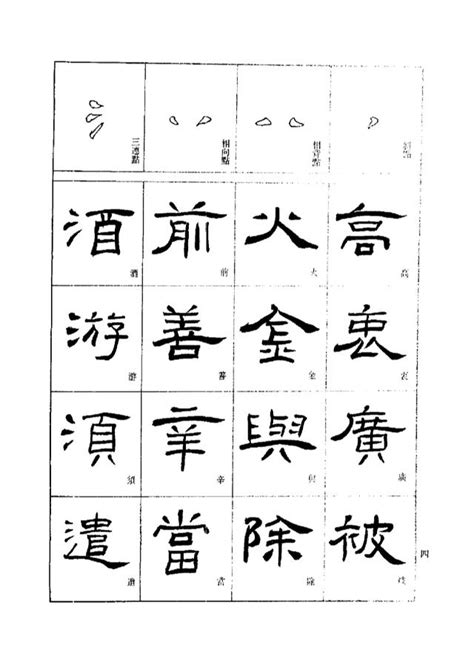 高
高
衷
衷
廣
廣
被
被
相背點
火
火
金
金
與
與
除
除
相向點
前
前
善
善
辛
辛
當
當
三連點
酒
酒
游
游
須
須
遣
遣
四